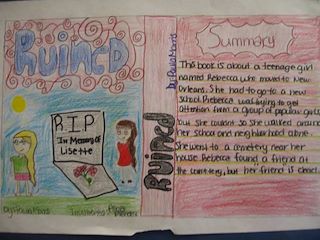 Ruined
R.I.P
In Memory Of
Lisette
Ruined
Summary
This book is about a teenage girl
named Rebecca who moved to New
Orleans. She had to go to a new
school Rebecca was trying to get
attention from a group of popular girls
but she couldnt so she walked around
her school and neighborhood alone.
She went to a cemetery near her
house Rebecca found a friend at
the cemetery, but her friend is dead.